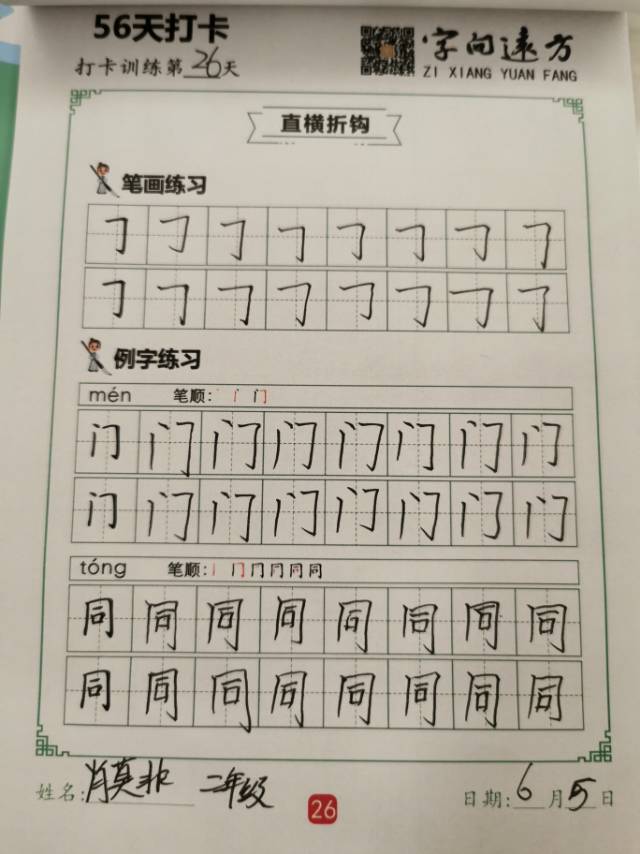 56天打卡
打卡训练第26天
字向远方
ZI XIANG YUAN FANG
直横折钩
笔画练习
㇆㇆㇆㇆㇆㇆㇆㇆
㇆㇆㇆㇆㇆㇆㇆㇆
例字练习
mén 笔顺: 丶 丨 门
门门门门门门门门
门门门门门门门门
tóng 笔顺: 丨 冂 冂 冋 同 同
同同同同同同同同
同同同同同同同同
姓名: 肖莫非 二年级
26
日期: 6月5日